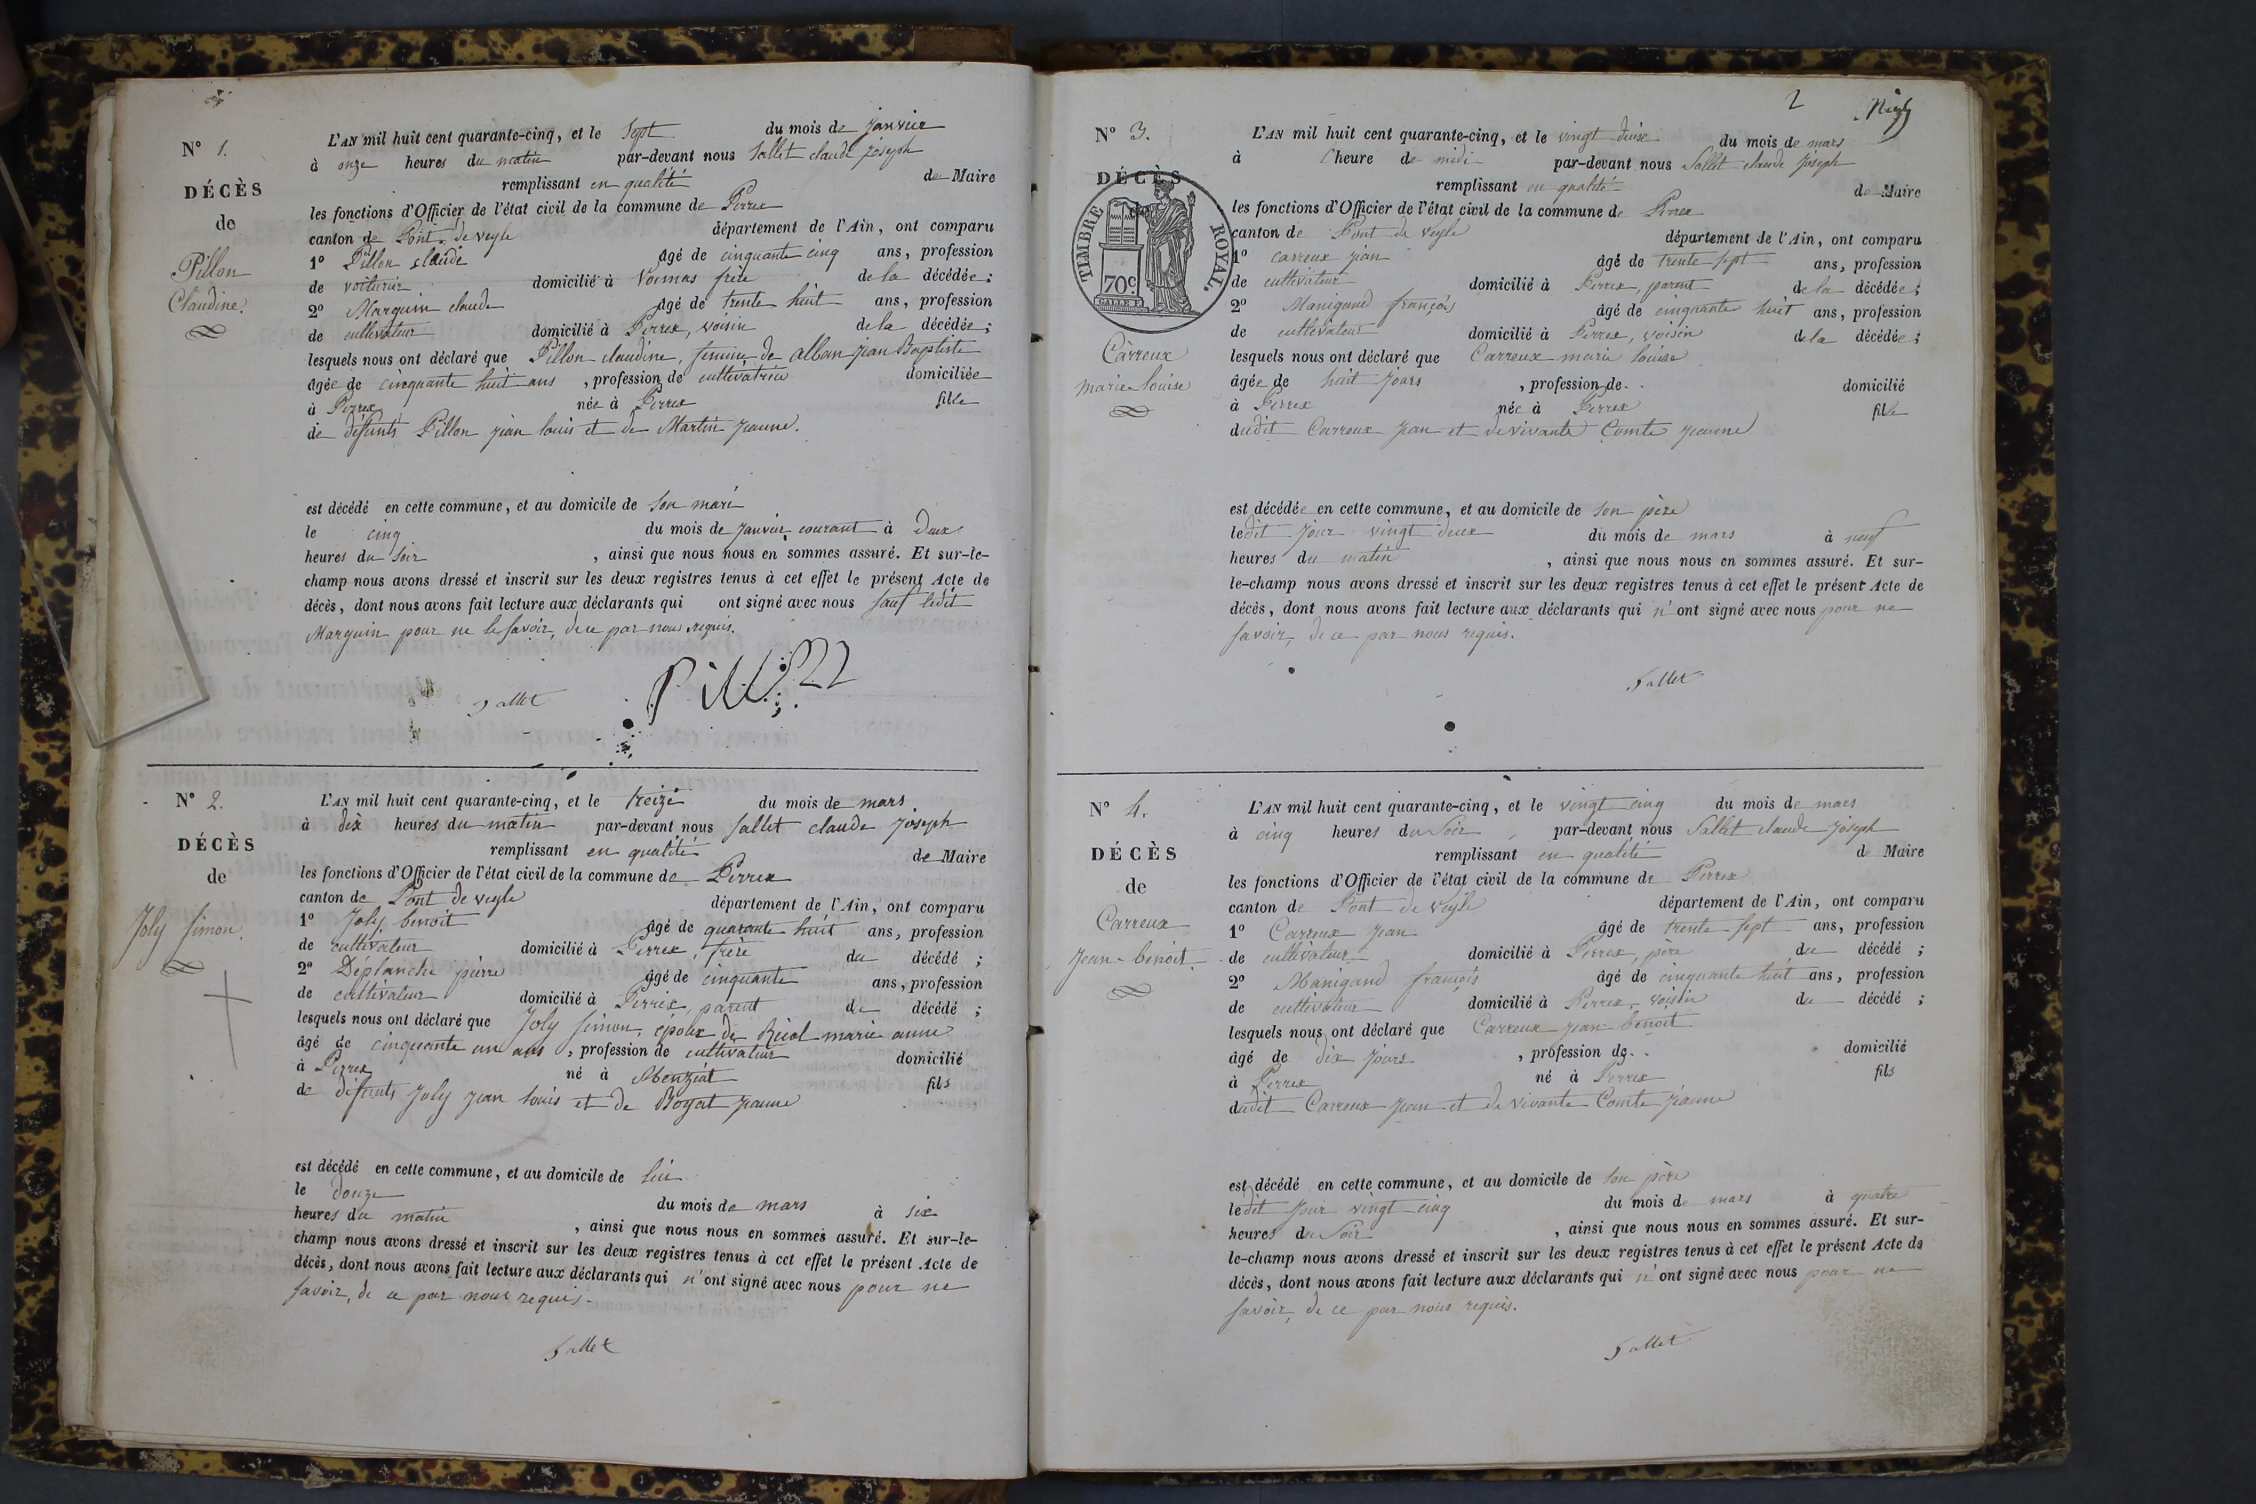 N° 1.
DÉCÈS
de
Pillon
Claudine.
L'AN mil huit cent quarante-cinq, et le sept du mois de janvier
à onze heures du matin par-devant nous Sallet claude joseph
remplissant en qualité de Maire
les fonctions d'Officier de l'état civil de la commune de Perrex
canton de Pont-de veyle département de l'Ain, ont comparu
1° Pillon claude âgé de cinquante cinq ans, profession
de voiturier domicilié à Vonnas frère de la décédée ;
2° Marguin claude âgé de trente huit ans, profession
de cultivateur domicilié à Perrex, voisin de la décédée ;
lesquels nous ont déclaré que Pillon claudine, femme de alban jean Baptiste
âgée de cinquante huit ans , profession de cultivatrice domiciliée
à Perrex née à Perrex fille
de défunts Pillon jean louis et de Martin jeanne.
est décédé en cette commune, et au domicile de son mari
le cinq du mois de janvier courant à deux
heures du soir , ainsi que nous nous en sommes assuré. Et sur-le-
champ nous avons dressé et inscrit sur les deux registres tenus à cet effet le présent Acte de
décès, dont nous avons fait lecture aux déclarants qui ont signé avec nous sauf ledit
Marguin pour ne le savoir, de ce par nous requis.
Sallet Pillon
N° 2.
DÉCÈS
de
Joly Simon.
L'AN mil huit cent quarante-cinq, et le treize du mois de mars
à dix heures du matin par-devant nous Sallet claude joseph
remplissant en qualité de Maire
les fonctions d'Officier de l'état civil de la commune de Perrex
canton de Pont de veyle département de l'Ain, ont comparu
1° Joly benoit âgé de quarante huit ans, profession
de cultivateur domicilié à Perrex, frère du décédé ;
2° Déplanche pierre âgé de cinquante ans, profession
de cultivateur domicilié à Perrex, parent du décédé ;
lesquels nous ont déclaré que Joly simon, époux de Récol marie anne
âgé de cinquante un ans , profession de cultivateur domicilié
à Perrex né à Menziat fils
de défunts Joly jean louis et de Boyat jeanne
est décédé en cette commune, et au domicile de lui
le douze du mois de mars à six
heures du matin , ainsi que nous nous en sommes assuré. Et sur-le-
champ nous avons dressé et inscrit sur les deux registres tenus à cet effet le présent Acte de
décès, dont nous avons fait lecture aux déclarants qui n'ont signé avec nous pour ne
savoir, de ce par nous requis.
Sallet
2
N° 3.
DÉCÈS
TIMBRE ROYAL.
70c
Carreux
marie-louise
L'AN mil huit cent quarante-cinq, et le vingt deux du mois de mars
à l'heure de midi par-devant nous Sallet claude joseph
remplissant en qualité de Maire
les fonctions d'Officier de l'état civil de la commune de Perrex
canton de Pont de veyle département de l'Ain, ont comparu
1° carreux jean âgé de trente sept ans, profession
de cultivateur domicilié à Perrex, parent de la décédée ;
2° Manigand françois âgé de cinquante huit ans, profession
de cultivateur domicilié à Perrex, voisin de la décédée ;
lesquels nous ont déclaré que Carreux marie louise
âgée de huit jours , profession de domicilié
à Perrex née à Perrex fille
dudit Carreux jean et de vivante Comte jeanne
est décédée en cette commune, et au domicile de son père
ledit jour vingt deux du mois de mars à neuf
heures du matin , ainsi que nous nous en sommes assuré. Et sur-
le-champ nous avons dressé et inscrit sur les deux registres tenus à cet effet le présent Acte de
décès, dont nous avons fait lecture aux déclarants qui n'ont signé avec nous pour ne
savoir, de ce par nous requis.
Sallet
N° 4.
DÉCÈS
de
Carreux
jean-benoit.
L'AN mil huit cent quarante-cinq, et le vingt cinq du mois de mars
à cinq heures du soir par-devant nous Sallet claude joseph
remplissant en qualité de Maire
les fonctions d'Officier de l'état civil de la commune de Perrex
canton de Pont de veyle département de l'Ain, ont comparu
1° Carreux jean âgé de trente sept ans, profession
de cultivateur domicilié à Perrex, père du décédé ;
2° Manigand françois âgé de cinquante huit ans, profession
de cultivateur domicilié à Perrex, voisin du décédé ;
lesquels nous ont déclaré que Carreux jean benoit
âgé de dix jours , profession de domicilié
à Perrex né à Perrex fils
dudit Carreux jean et de vivante Comte jeanne
est décédé en cette commune, et au domicile de son père
ledit jour vingt cinq du mois de mars à quatre
heures du soir , ainsi que nous nous en sommes assuré. Et sur-
le-champ nous avons dressé et inscrit sur les deux registres tenus à cet effet le présent Acte de
décès, dont nous avons fait lecture aux déclarants qui n'ont signé avec nous pour ne
savoir, de ce par nous requis.
Sallet